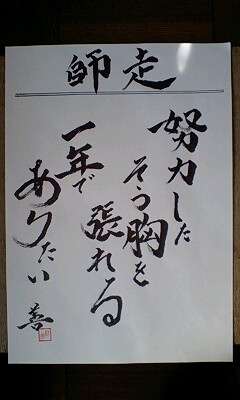 師走
努力した
そう胸を
張れる
一年で
ありたい
善